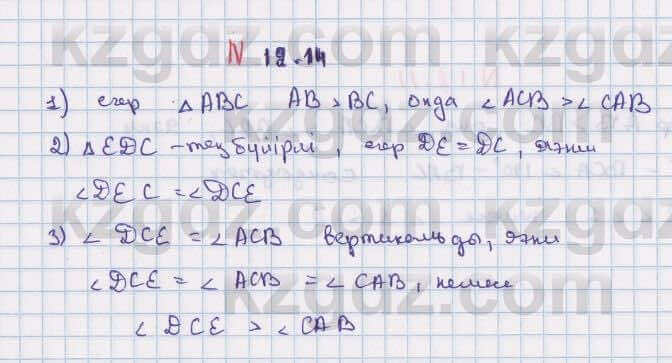 N 12.14
1) егер △ABC AB > BC, онда ∠ACB > ∠CAB
2) △EDC - тең бүйірлі, егер DE = DC, яғни
∠DEC = ∠DCE
3) ∠DCE = ∠ACB вертикальды, яғни
∠DCE = ∠ACB = ∠CAB, немесе
∠DCE > ∠CAB
kzgdz.com